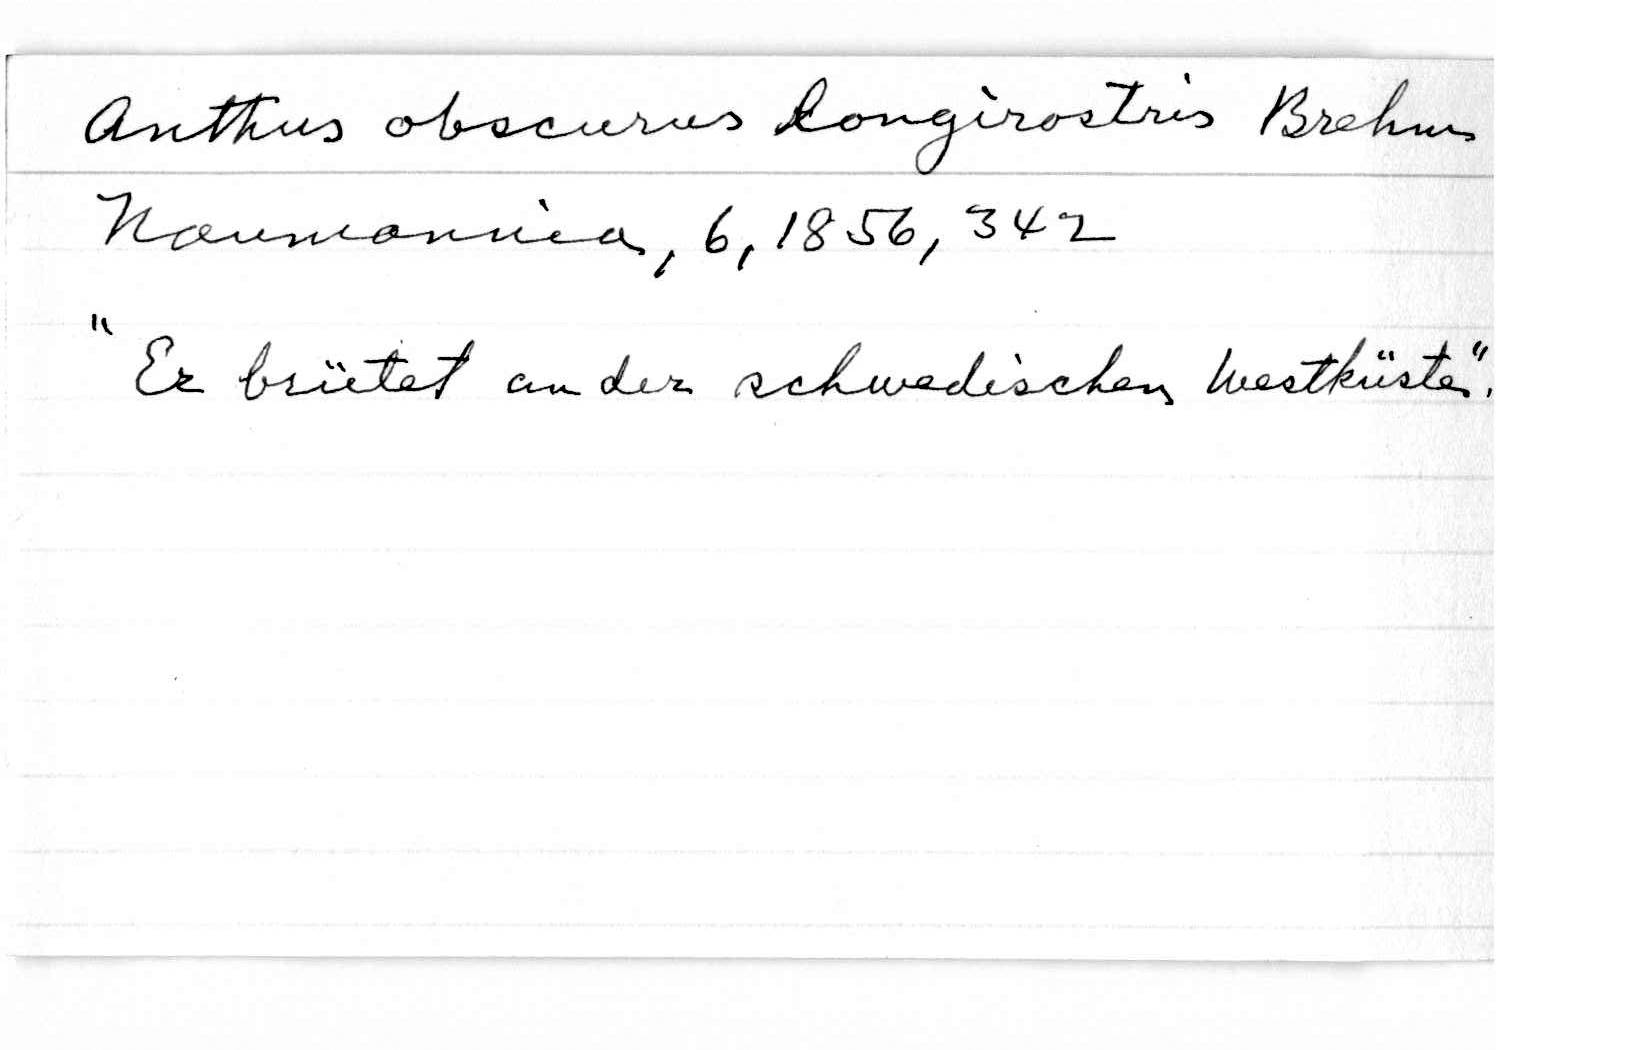 Anthus obscurus longirostris Brehm
Naumannia, 6, 1856, 342
"Er brütet an der schwedischen Westküste".